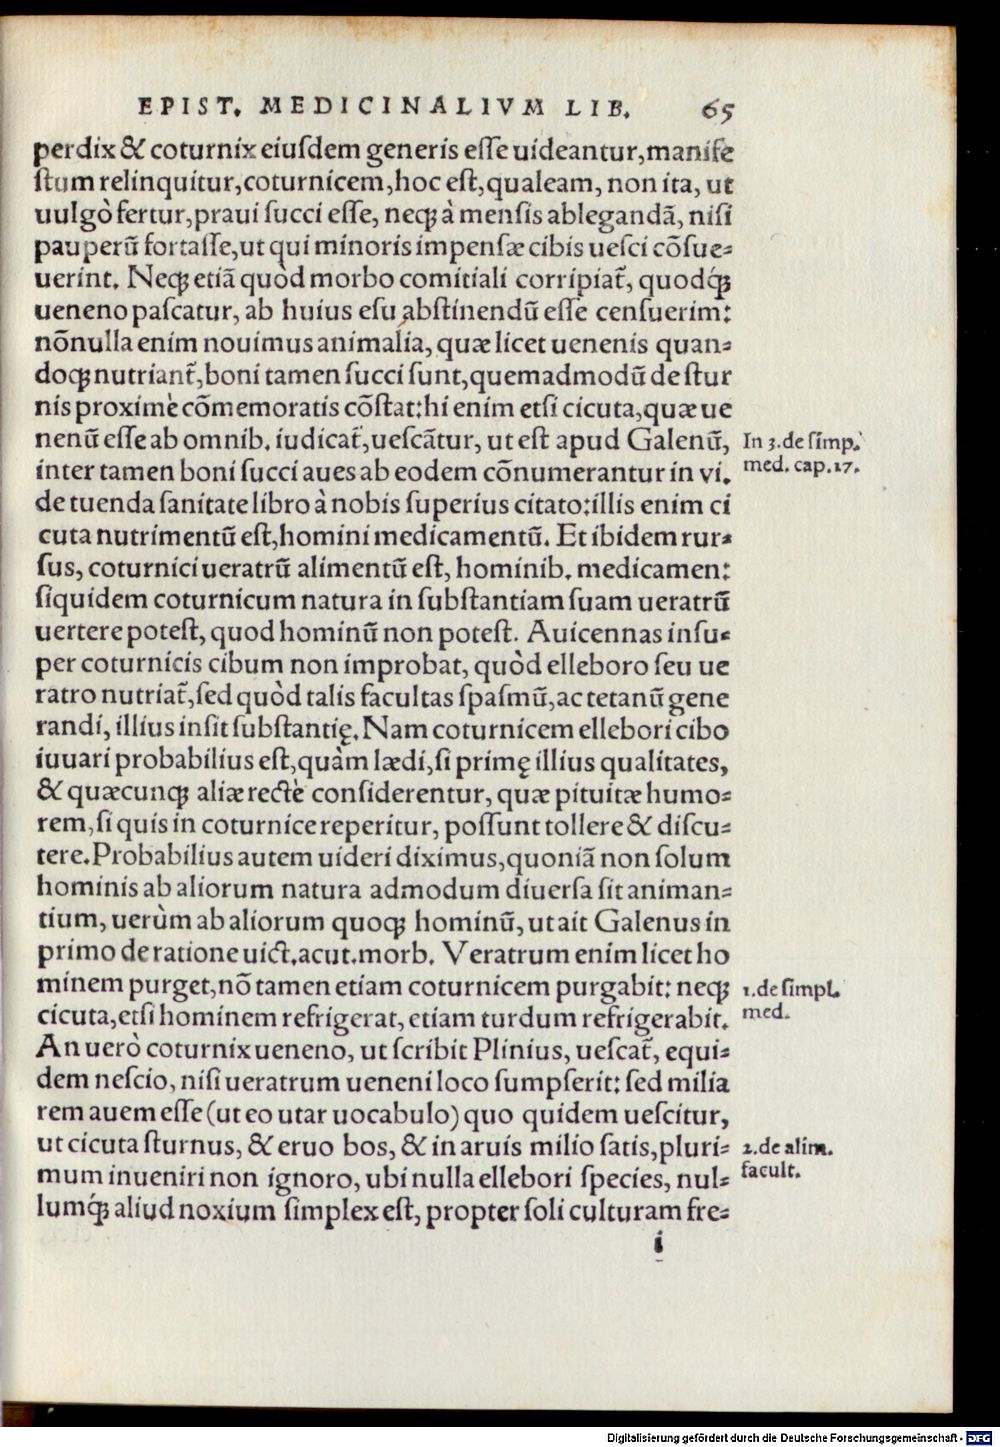 EPIST. MEDICINALIVM LIB. 65
perdix & coturnix eiuſdem generis eſſe uideantur, manife
ſtum relinquitur, coturnicem, hoc eſt, qualeam, non ita, ut
uulgò fertur, praui ſucci eſſe, neqꝫ à menſis ablegandã, niſi
pauperũ fortaſſe, ut qui minoris impenſæ cibis ueſci cõſue⸗
uerint. Neqꝫ etiã quòd morbo comitiali corripiat᷑, quodq́ꝫ
ueneno paſcatur, ab huius eſu abſtinendũ eſſe cenſuerim:
nõnulla enim nouimus animalia, quæ licet uenenis quan⸗
doqꝫ nutriant᷑, boni tamen ſucci ſunt, quemadmodũ de ſtur
nis proximè cõmemoratis cõſtat: hi enim etſi cicuta, quæ ue
nenũ eſſe ab omnib. iudicat᷑, ueſcãtur, ut eſt apud Galenũ,
In 3. de ſimp.
med. cap. 17.
inter tamen boni ſucci aues ab eodem cõnumerantur in vi.
de tuenda ſanitate libro à nobis ſuperius citato: illis enim ci
cuta nutrimentũ eſt, homini medicamentũ. Et ibidem rur⸗
ſus, coturnici ueratrũ alimentũ eſt, hominib. medicamen:
ſiquidem coturnicum natura in ſubſtantiam ſuam ueratrũ
uertere poteſt, quod hominũ non poteſt. Auicennas inſu⸗
per coturnicis cibum non improbat, quòd elleboro ſeu ue
ratro nutriat᷑, ſed quòd talis facultas ſpaſmũ, ac tetanũ gene
randi, illius inſit ſubſtantię. Nam coturnicem ellebori cibo
iuuari probabilius eſt, quàm lædi, ſi primę illius qualitates,
& quæcunqꝫ aliæ rectè conſiderentur, quæ pituitæ humo⸗
rem, ſi quis in coturnice reperitur, poſſunt tollere & diſcu⸗
tere. Probabilius autem uideri diximus, quoniã non ſolum
hominis ab aliorum natura admodum diuerſa ſit animan⸗
tium, uerùm ab aliorum quoqꝫ hominũ, ut ait Galenus in
primo de ratione uict. acut. morb. Veratrum enim licet ho
minem purget, nõ tamen etiam coturnicem purgabit: neqꝫ
1. de ſimpl.
med.
cicuta, etſi hominem refrigerat, etiam turdum refrigerabit.
An uerò coturnix ueneno, ut ſcribit Plinius, ueſcat᷑, equi⸗
dem neſcio, niſi ueratrum ueneni loco ſumpſerit: ſed milia
rem auem eſſe (ut eo utar uocabulo) quo quidem ueſcitur,
ut cicuta ſturnus, & eruo bos, & in aruis milio ſatis, pluri⸗
2. de alim.
facult.
mum inueniri non ignoro, ubi nulla ellebori ſpecies, nul⸗
lumq́ꝫ aliud noxium ſimplex eſt, propter ſoli culturam fre⸗
i
Digitalisierung gefördert durch die Deutsche Forschungsgemeinschaft - DFG